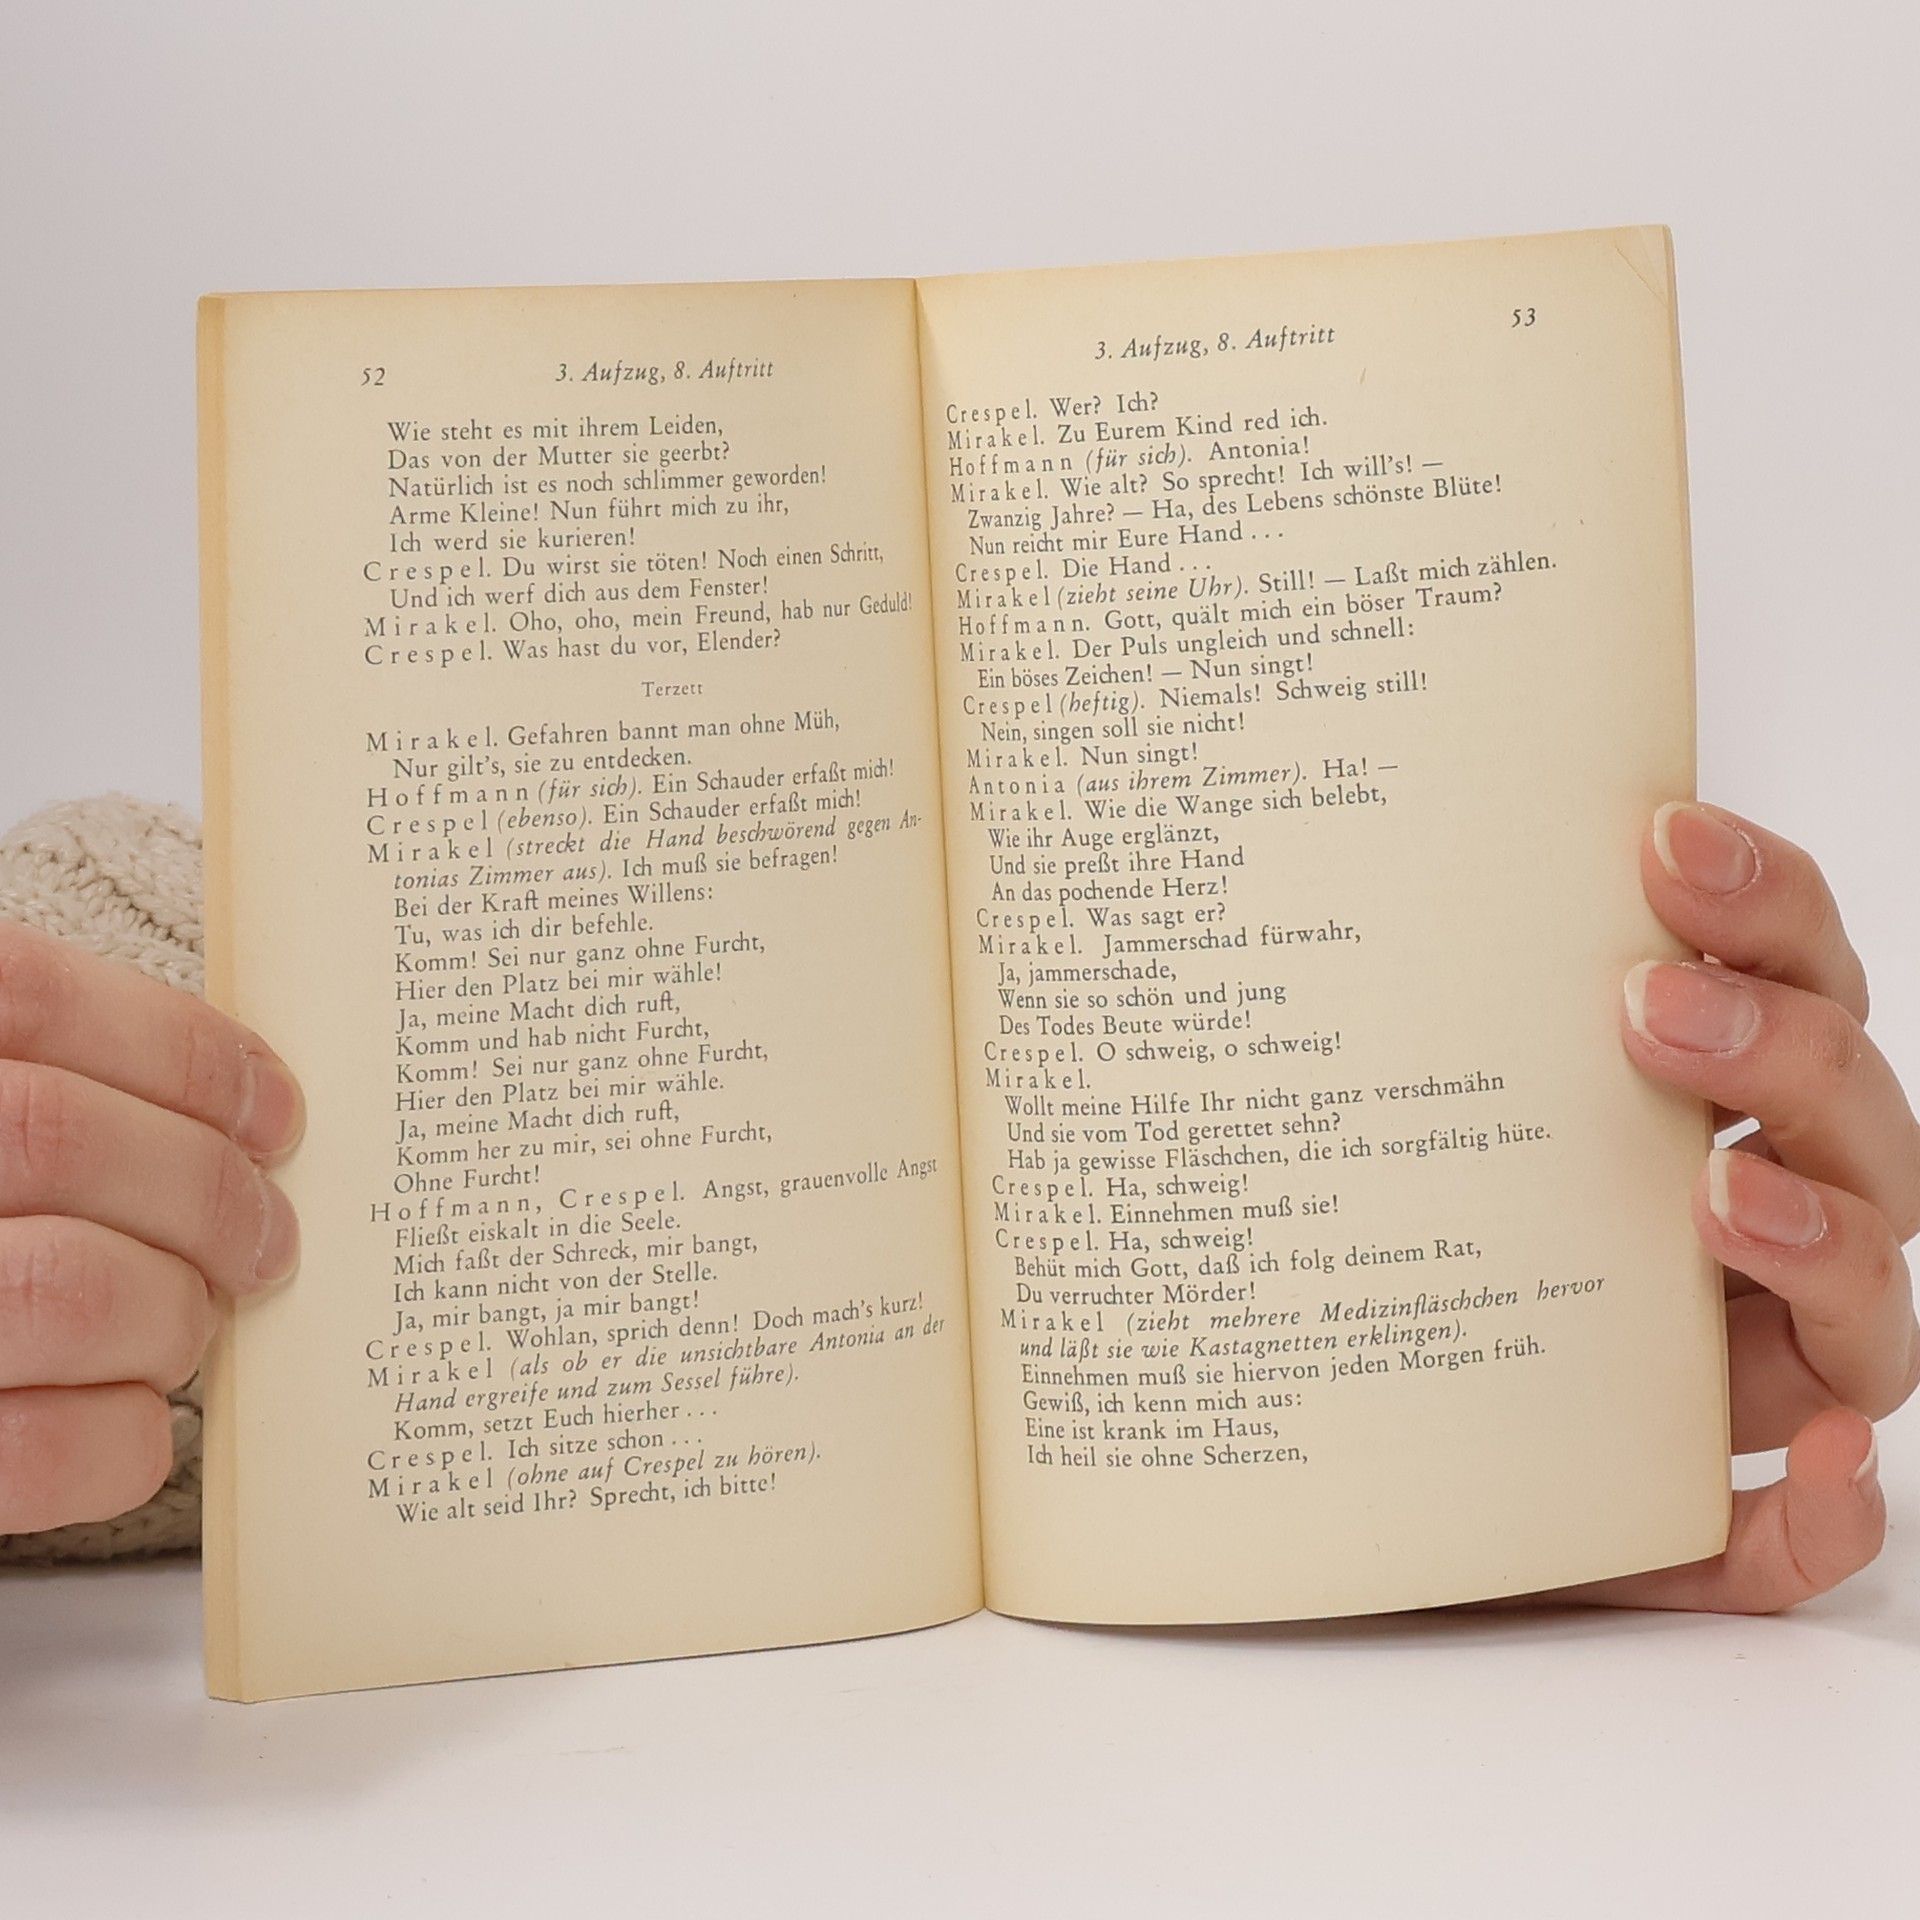 52
3. Aufzug, 8. Auftritt
Wie steht es mit ihrem Leiden,
Das von der Mutter sie geerbt?
Natürlich ist es noch schlimmer geworden!
Arme Kleine! Nun führt mich zu ihr,
Ich werd sie kurieren!
Crespel. Du wirst sie töten! Noch einen Schritt,
Und ich werf dich aus dem Fenster!
Mirakel. Oho, oho, mein Freund, hab nur Geduld!
Crespel. Was hast du vor, Elender?
Terzett
Mirakel. Gefahren bannt man ohne Müh,
Nur gilt's, sie zu entdecken.
Hoffmann (für sich). Ein Schauder erfaßt mich!
Crespel (ebenso). Ein Schauder erfaßt mich!
Mirakel (streckt die Hand beschwörend gegen An-
tonias Zimmer aus). Ich muß sie befragen!
Bei der Kraft meines Willens:
Tu, was ich dir befehle.
Komm! Sei nur ganz ohne Furcht,
Hier den Platz bei mir wähle!
Ja, meine Macht dich ruft,
Komm und hab nicht Furcht,
Komm! Sei nur ganz ohne Furcht,
Hier den Platz bei mir wähle.
Ja, meine Macht dich ruft,
Komm her zu mir, sei ohne Furcht,
Ohne Furcht!
Hoffmann, Crespel. Angst, grauenvolle Angst
Fließt eiskalt in die Seele.
Mich faßt der Schreck, mir bangt,
Ich kann nicht von der Stelle.
Ja, mir bangt, ja mir bangt!
Crespel. Wohlan, sprich denn! Doch mach's kurz!
Mirakel (als ob er die unsichtbare Antonia an der
Hand ergreife und zum Sessel führe).
Komm, setzt Euch hierher . . .
Crespel. Ich sitze schon . . .
Mirakel (ohne auf Crespel zu hören).
Wie alt seid Ihr? Sprecht, ich bitte!
3. Aufzug, 8. Auftritt
53
Crespel. Wer? Ich?
Mirakel. Zu Eurem Kind red ich.
Hoffmann (für sich). Antonia!
Mirakel. Wie alt? So sprecht! Ich will's! —
Zwanzig Jahre? — Ha, des Lebens schönste Blüte!
Nun reicht mir Eure Hand . . .
Crespel. Die Hand . . .
Mirakel (zieht seine Uhr). Still! — Laßt mich zählen.
Hoffmann. Gott, quält mich ein böser Traum?
Mirakel. Der Puls ungleich und schnell:
Ein böses Zeichen! — Nun singt!
Crespel (heftig). Niemals! Schweig still!
Nein, singen soll sie nicht!
Mirakel. Nun singt!
Antonia (aus ihrem Zimmer). Ha! —
Mirakel. Wie die Wange sich belebt,
Wie ihr Auge erglänzt,
Und sie preßt ihre Hand
An das pochende Herz!
Crespel. Was sagt er?
Mirakel. Jammerschad fürwahr,
Ja, jammerschade,
Wenn sie so schön und jung
Des Todes Beute würde!
Crespel. O schweig, o schweig!
Mirakel.
Wollt meine Hilfe Ihr nicht ganz verschmähn
Und sie vom Tod gerettet sehn?
Hab ja gewisse Fläschchen, die ich sorgfältig hüte.
Crespel. Ha, schweig!
Mirakel. Einnehmen muß sie!
Crespel. Ha, schweig!
Behüt mich Gott, daß ich folg deinem Rat,
Du verruchter Mörder!
Mirakel (zieht mehrere Medizinfläschchen hervor
und läßt sie wie Kastagnetten erklingen).
Einnehmen muß sie hiervon jeden Morgen früh.
Gewiß, ich kenn mich aus:
Eine ist krank im Haus,
Ich heil sie ohne Scherzen,